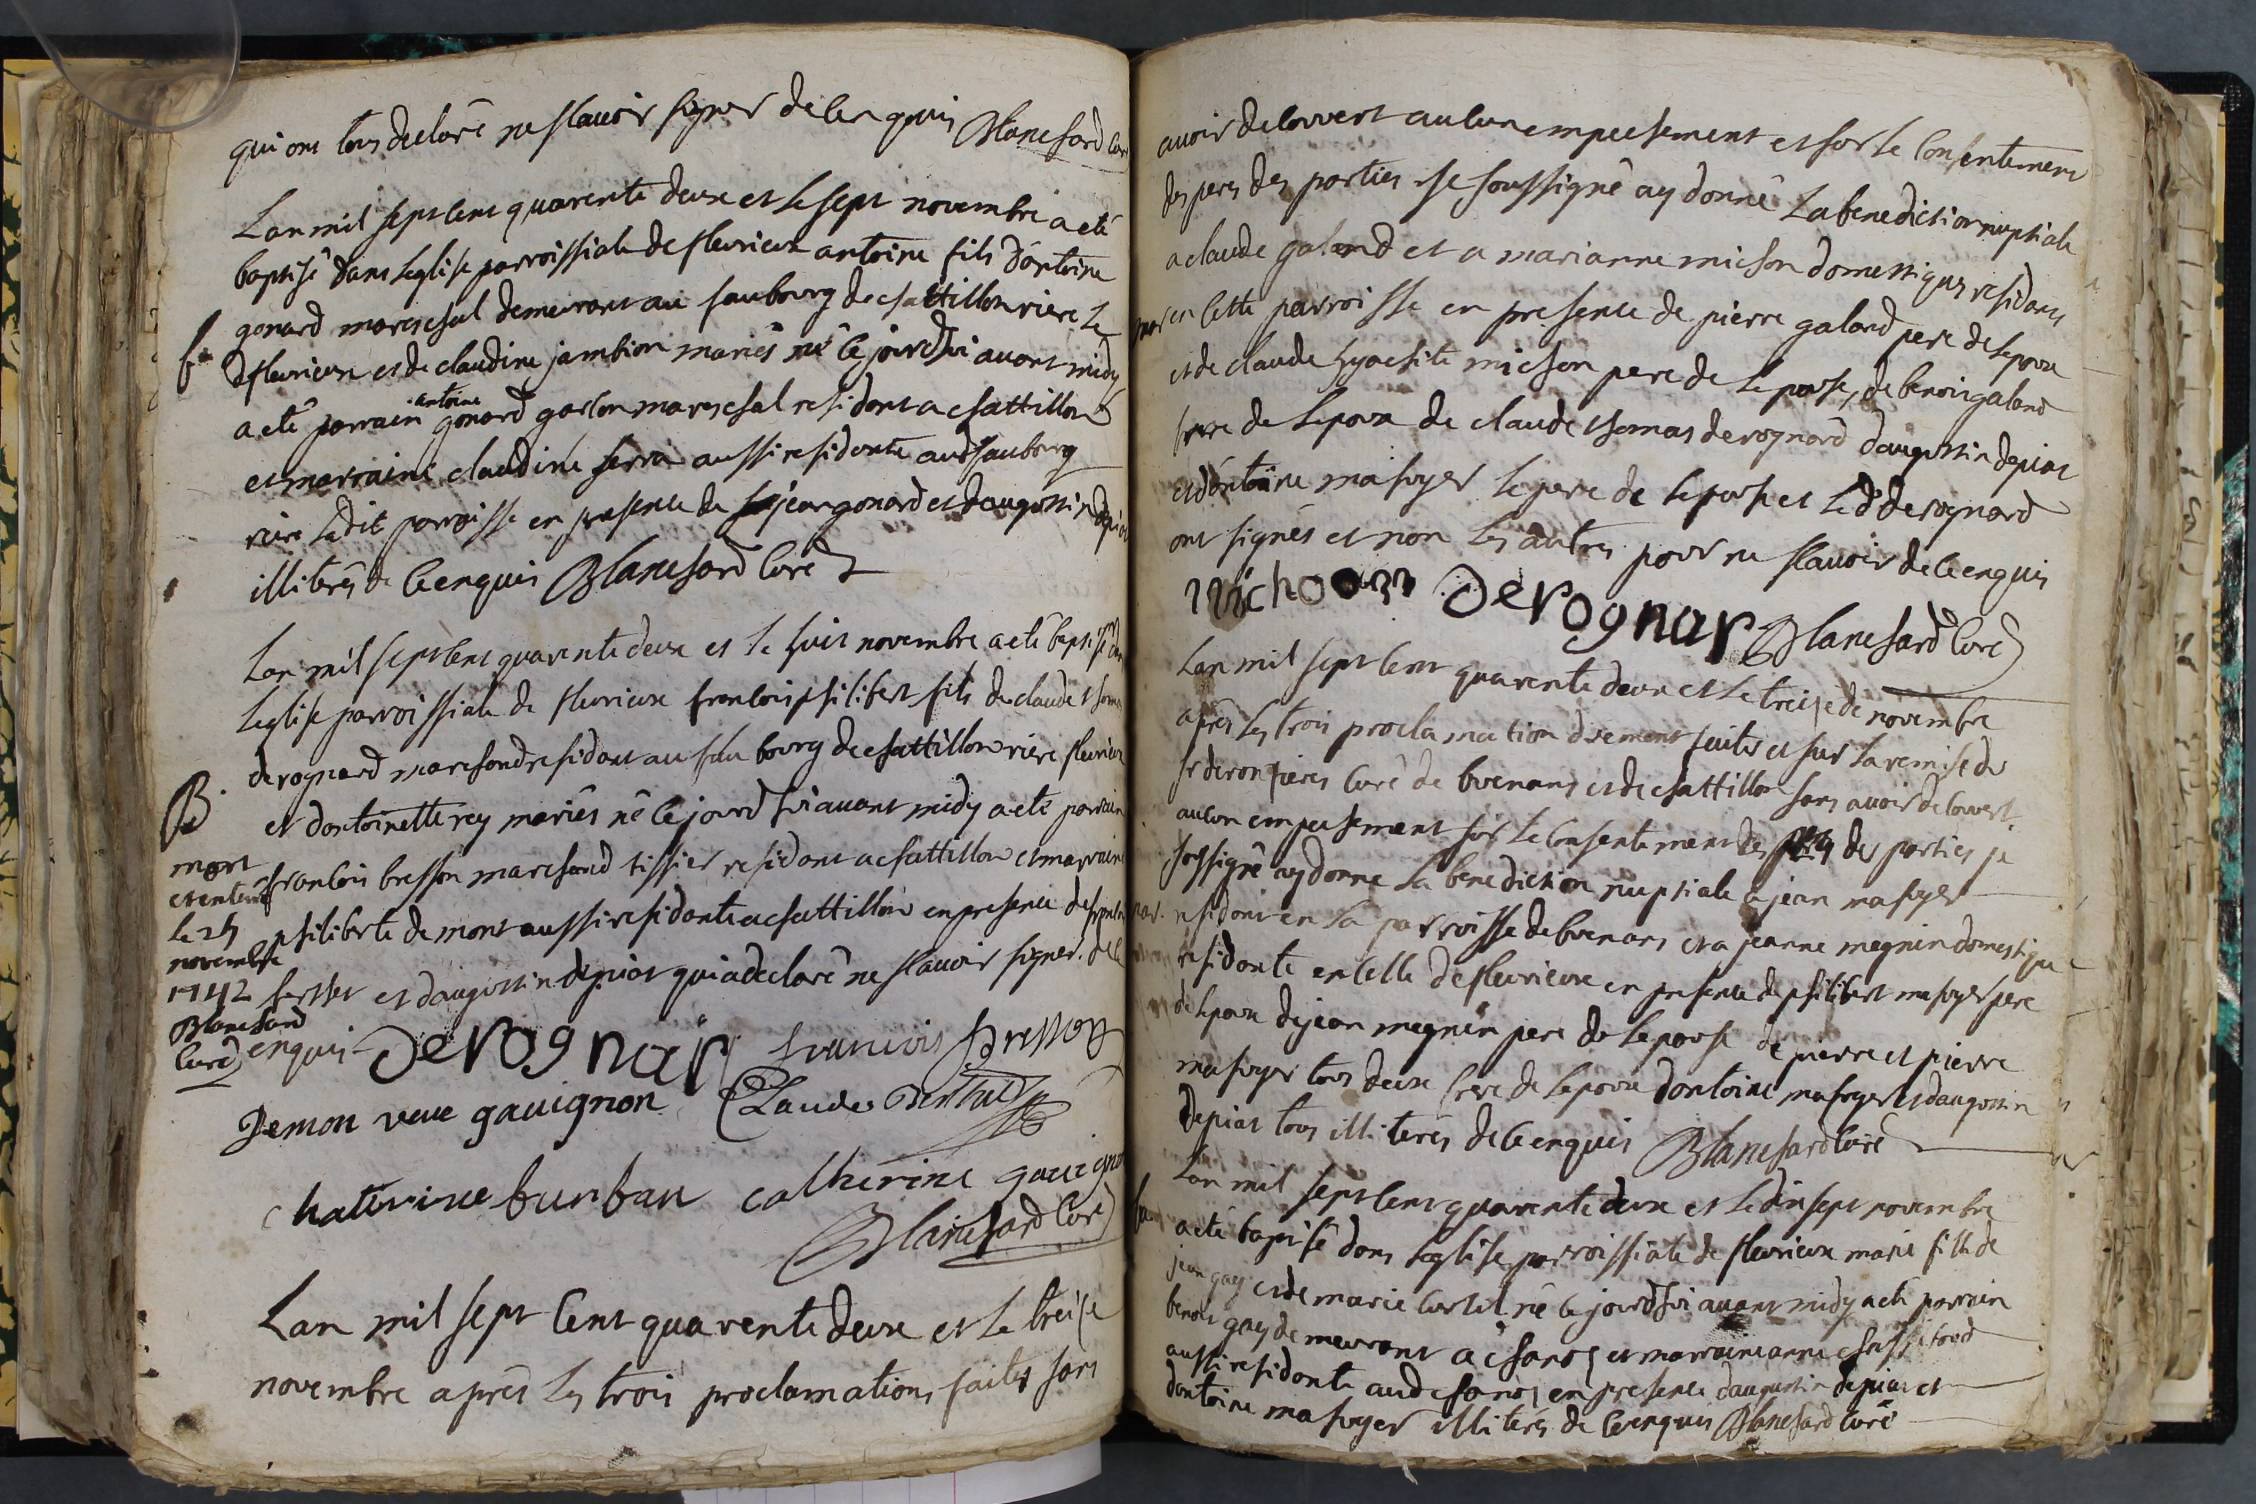 qui ont tous declaré ne scavoir signer de ce enquis Blanchard curé
Lan mil sept cent quarente deux et le sept novembre a eté
baptisé dans leglise parroissiale de fleurieux antoine fils d'antoine
gonard marechal demeurant au faubourg de chattillon riere le
dfleurieux et de claudine jambion mariés né ce jourdhui avant midy
a eté parrain antoine gonard garcon marechal residant a chattillon
et marraine claudine serra aussi residente aud faubourg
riere ladit parroisse en presence de jean gonard et daugustin depiat
illiterés de ce enquis Blanchard curé
Lan mil sept cent quarente deux et le huit novembre a eté baptisé dans
leglise parroissiale de fleurieux francois philibert fils de claude thomas
derognard marchand residant au faubourg de chattillon riere fleurieux
B.
et dantoinette rey mariés né ce jourdhui avant midy a eté parrain
francois bresson marchand tissier residant a chattillon et marraine
philiberte demont aussi residante a chattillon en presence de
et daugustin depiat qui a declaré ne scavoir signer. de ce
enquis
mort
et enterré
le 25
novembre
1742
Blanchard
curé
Derognar francois Bresson
Demon veuve gauignon Claude
Chaterine burban catherine gauignon
Blanchard curé
Lan mil sept cent quarente deux et le treise
novembre aprés les trois proclamations faites sans
avoir decouvert aucun empechement et sur le consentement
des peres des parties je soussigné ay donné la benediction nuptiale
a claude galand et a marianne michon domestiques residans
en cette parroisse en presence de pierre galand pere de lepoux
et de claude hyachite michon pere de lepouse, de benoit galand
frere de lepoux de claude thomas derognard daugustin depiat
et d'antoine mafoyer le pere de lepouse et led derognard
ont signés et non les autres pour ne scavoir de ce enquis
michoon Derognar Blanchard curé
Lan mil sept cent quarente deux et le treise de novembre
aprés les trois proclamation duement faites et sur la remise du
sr curé de buenans et de chattillon sans avoir decouvert
aucun empechement sur le consentement des peres des parties je
soussigné ay donné la benediction nuptiale a jean mafoyer
residant en la parroisse de buenans et a jeanne megnin domestique
residante en celle de fleurieux en presence de philibert mafoyer pere
de lepoux de jean megnin pere de lepouse de pierre et pierre
mafoyer tous deux frere de lepoux dantoine mafoyer et daugustin
depiat tous illiterés de ce enquis Blanchard curé
Lan mil sept cent quarente deux et le dix sept novembre
a eté baptisé dans leglise parroissiale de fleurieux marie fille de
jean gay et de marie curtil né ce jourdhui avant midy a eté parrain
benoit gay demeurant a et marraine anne
aussi residante aud en presence daugustin depiat et
dantoine mafoyer illiterés de ce enquis Blanchard curé